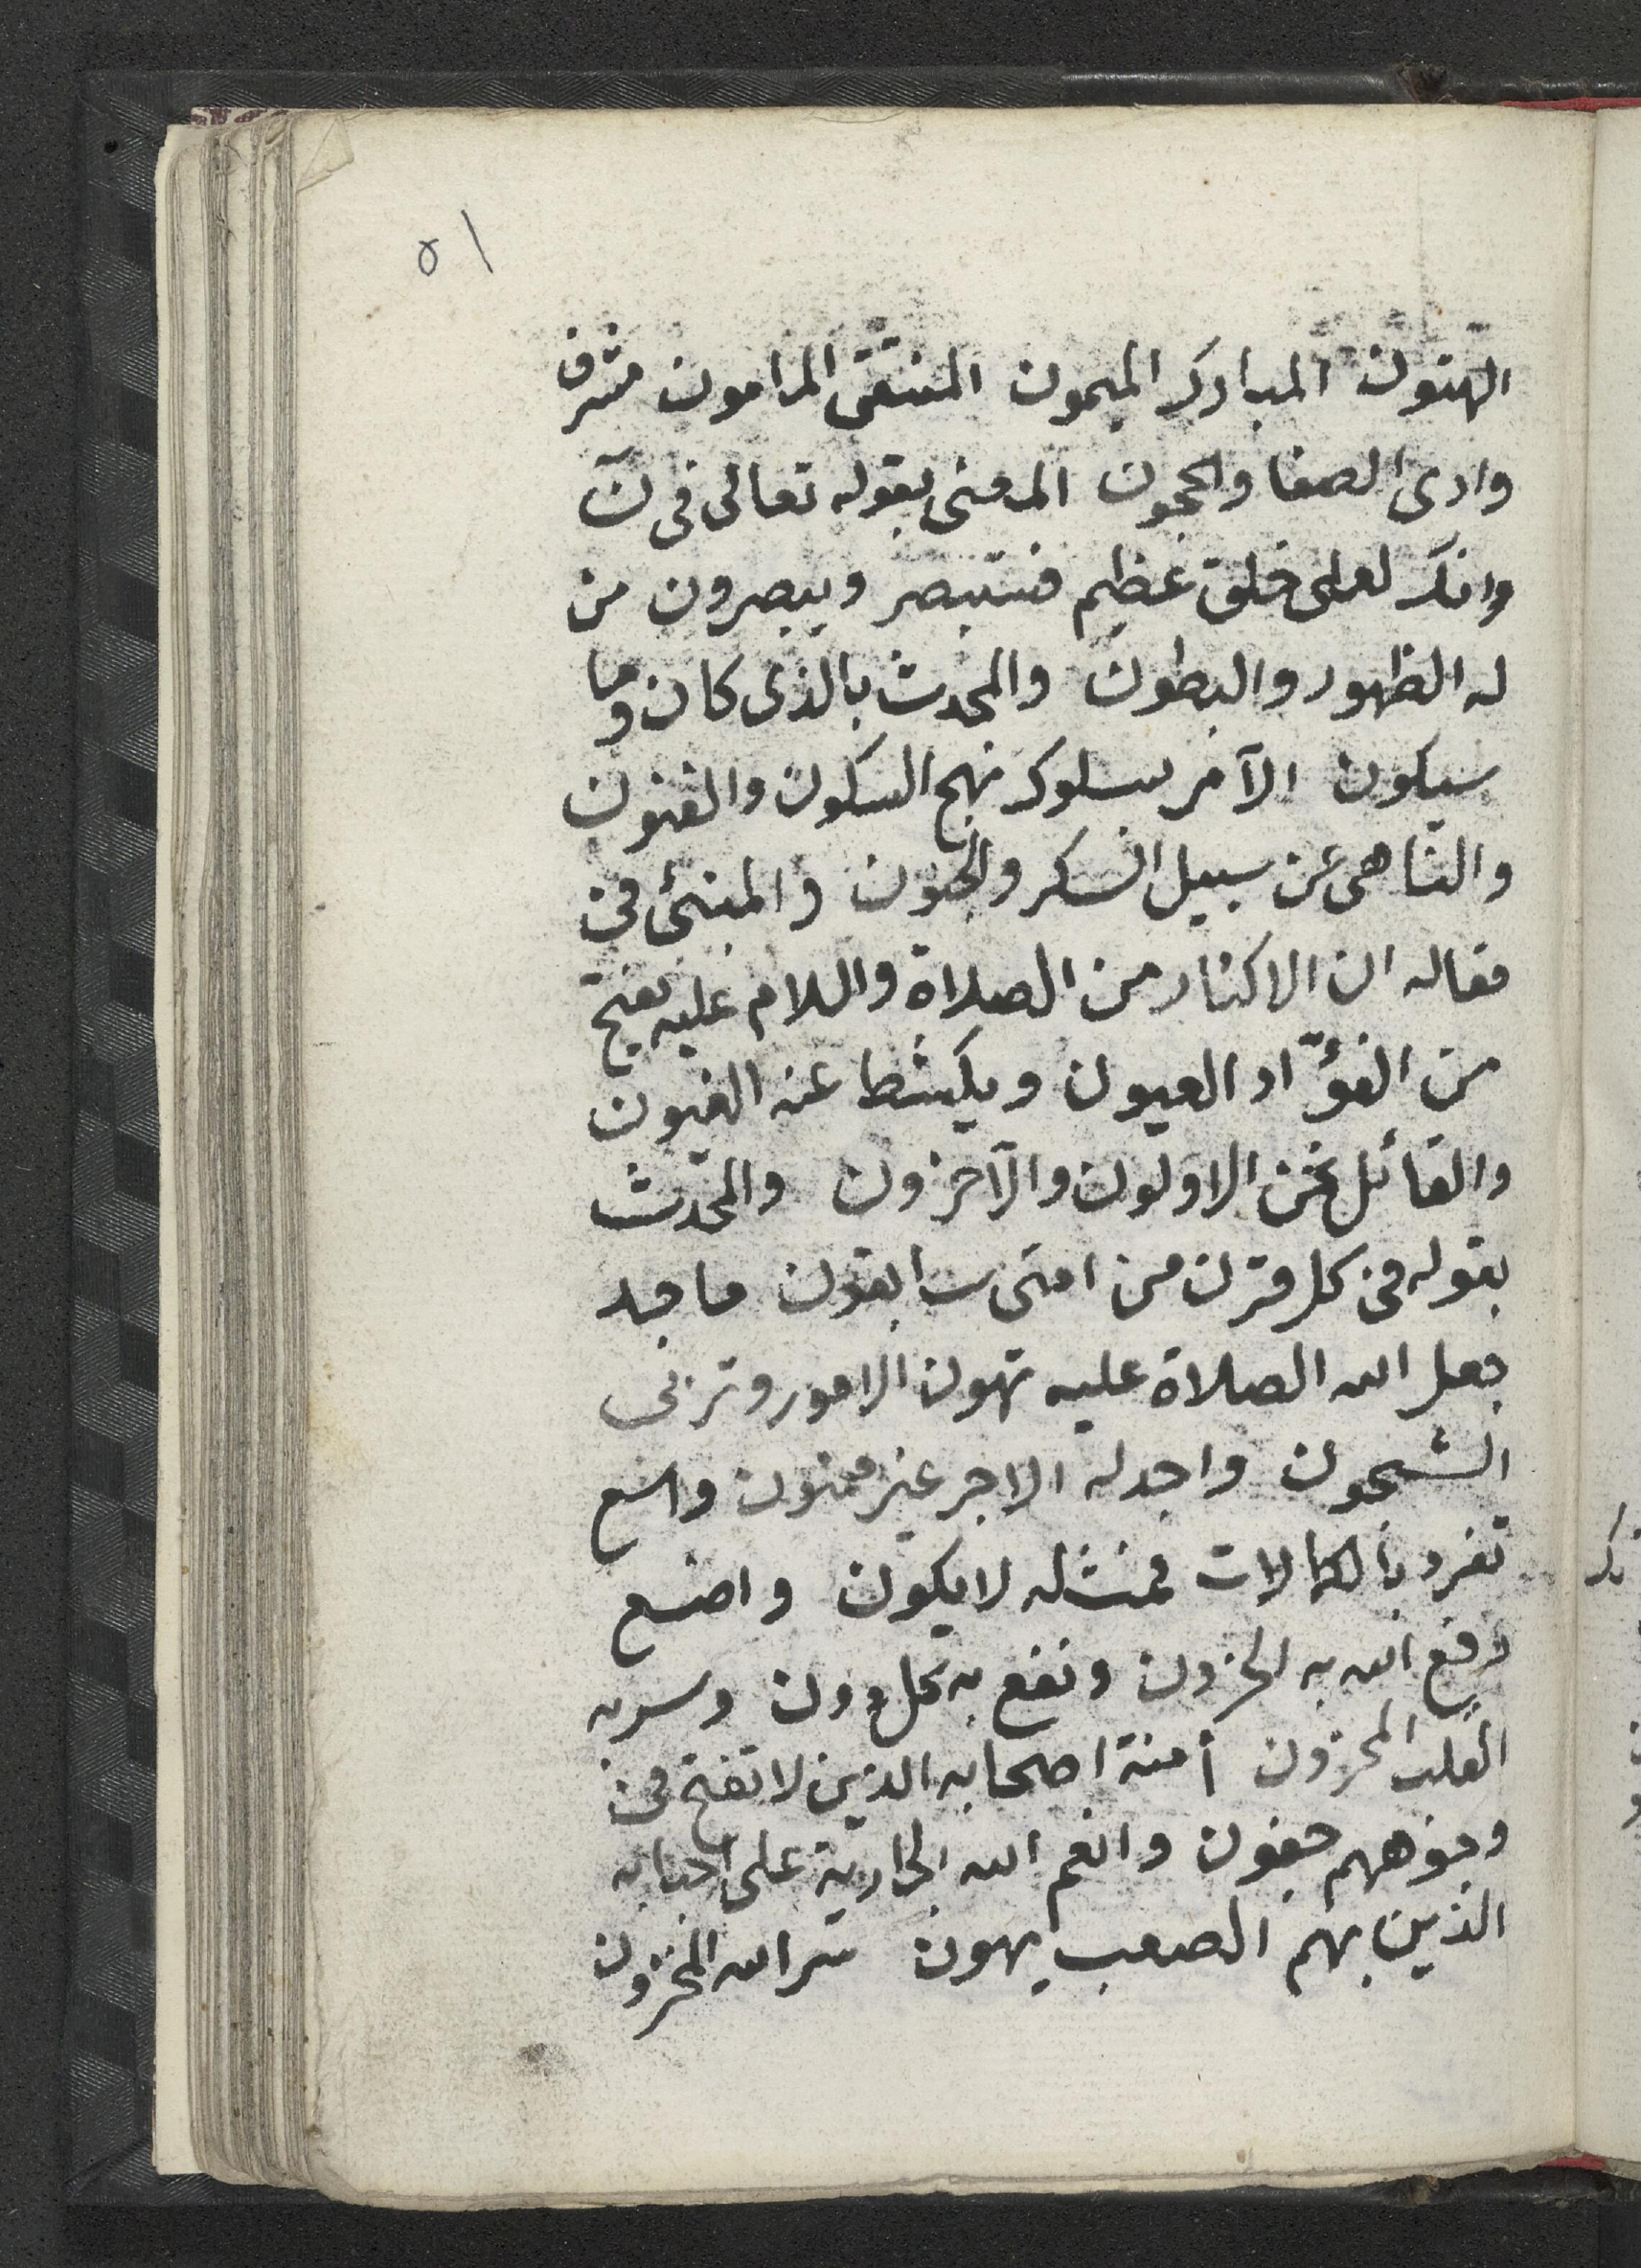 ٥١
الهتون المبارك الميمون المنتقى المامون مشرف
وادى الصفا والحجون المعنى بقوله تعالى فى نٓ
وانك لعلى خلق عظيم فستبصر ويبصرون من
له الظهور والبطون والمحدث بالذى كان وما
سيكون الآمر بسلوك نهج السكون والفنون
والناهى عن سبيل السكر والجنون والمنبئ فى
مقاله ان الاكثار من الصلاة والسلام عليه يفتح
من الفؤاد العيون ويكشط عنه الغيون
والقائل نحن الاولون والآخرون والمحدث
بقوله فى كل قرن من امتى سابقون ماجد
جعل الله الصلاة عليه تهون الامور وترى
الشجون واجد له الاجر غير ممنون واسع
تفرد بالكمالات فمثله لا يكون واضع
رفع الله به الحزون ونفع به كل دون وسر به
القلب المحزون أمنة اصحابه الذين لا تفتح فى
وجوههم جفون وانعم الله الجارية على احبابه
الذين بهم الصعب يهون سر الله المخزون